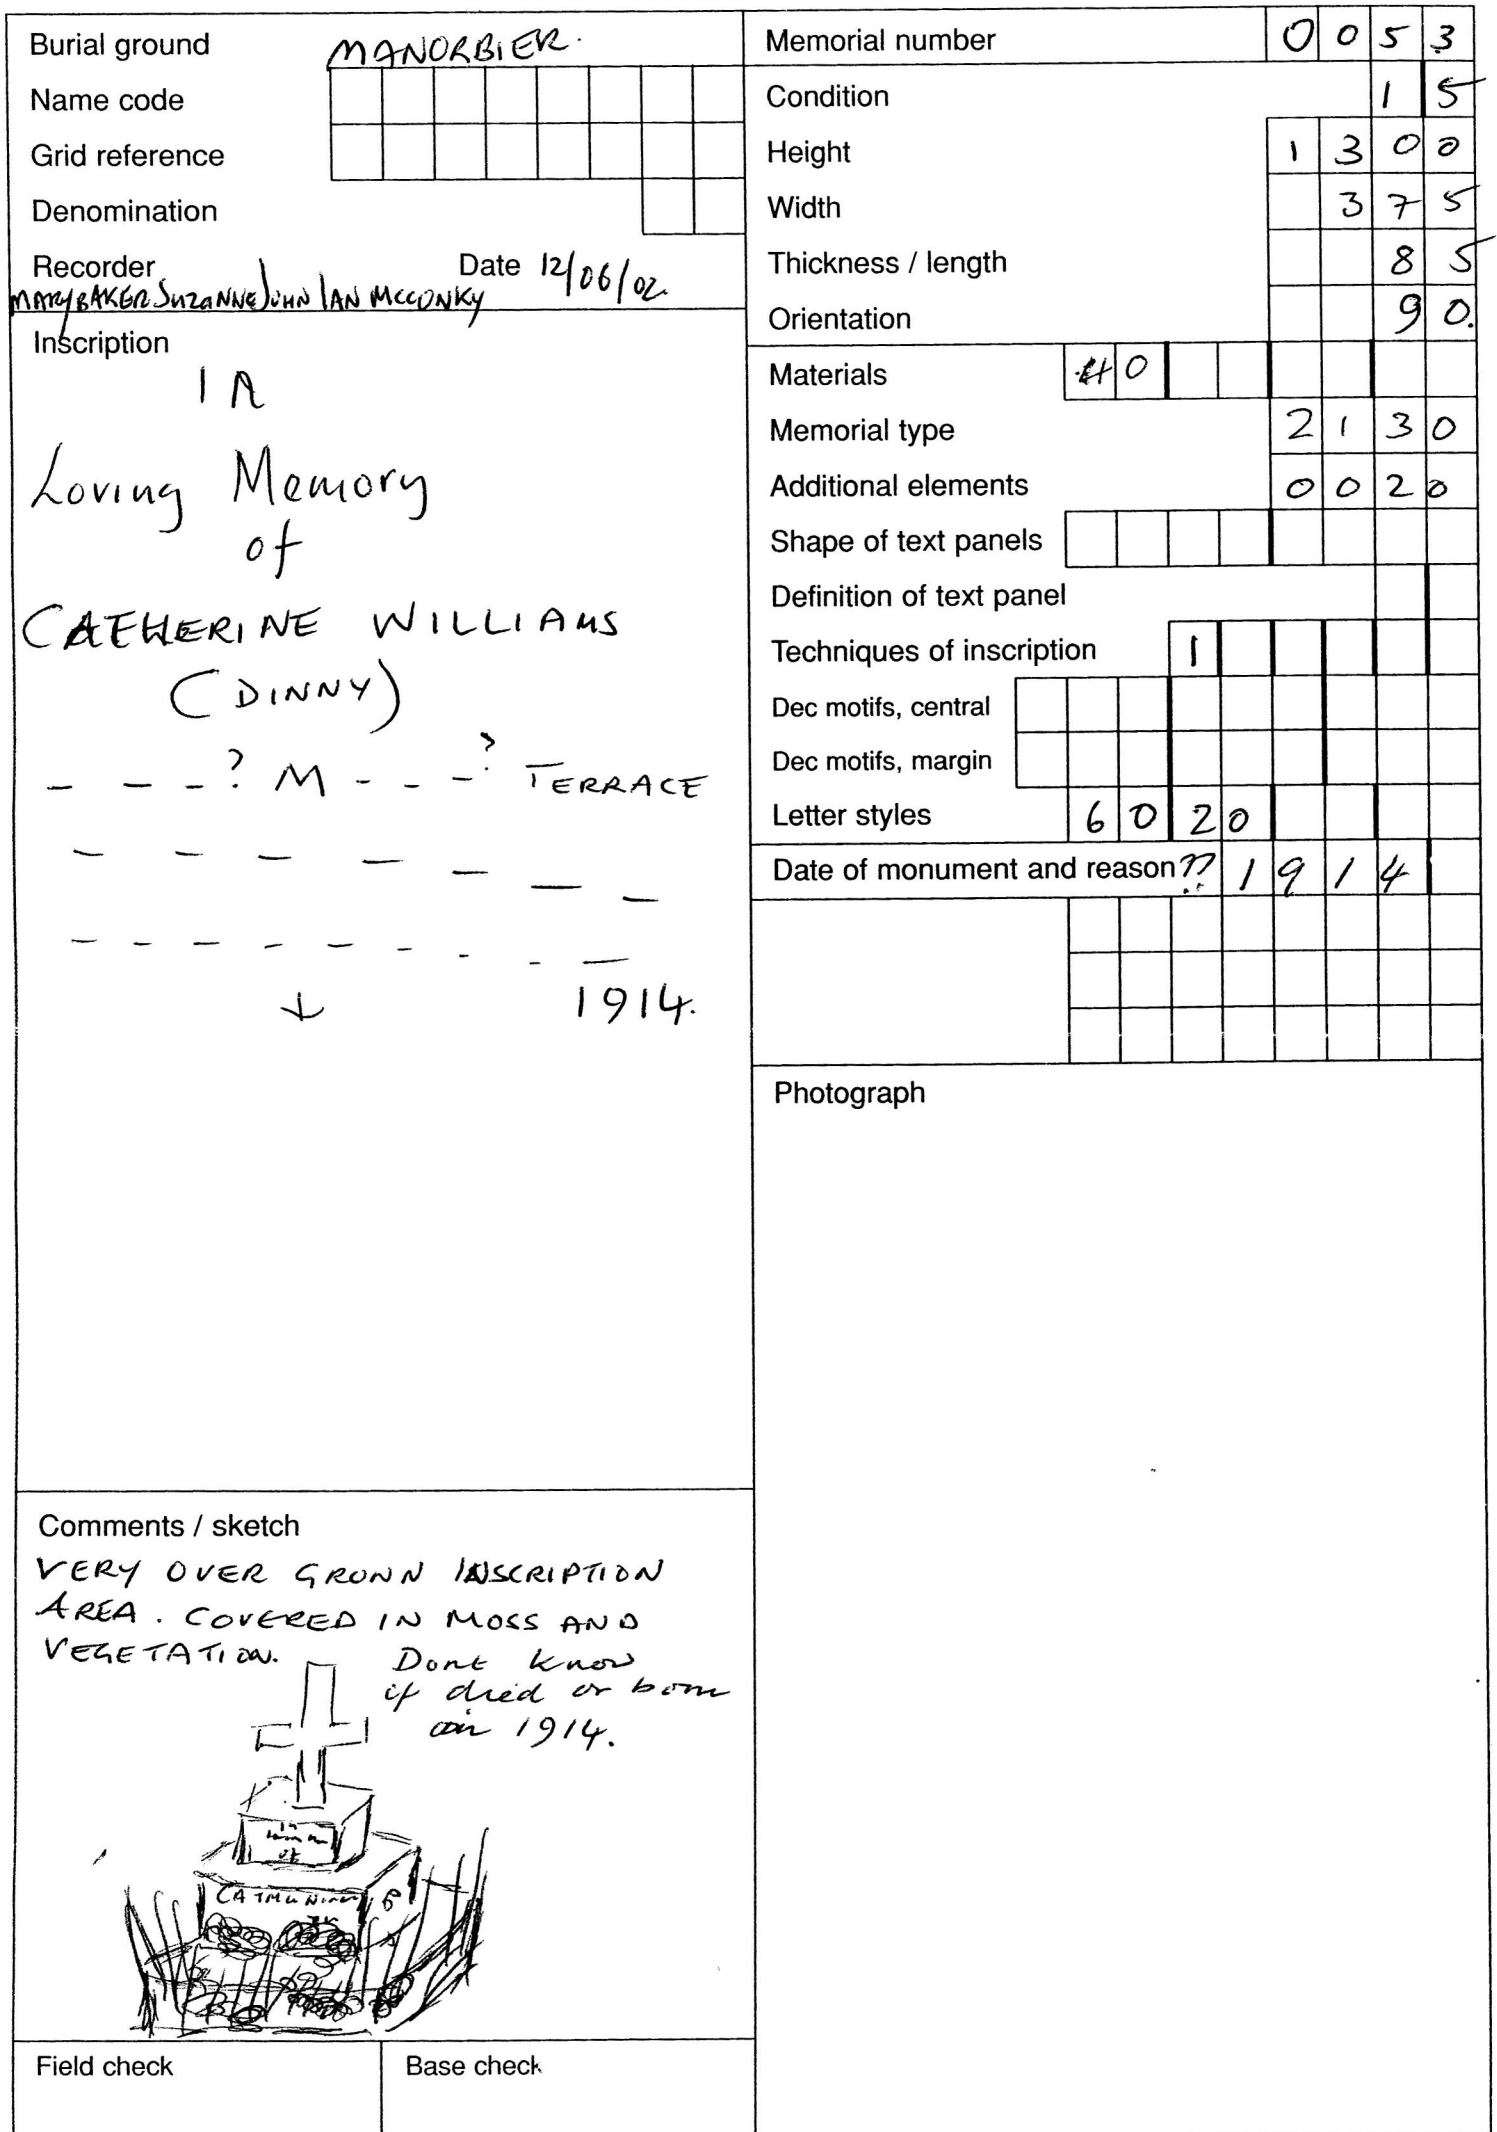 Burial ground MANORBIER.
Name code
Grid reference
Denomination
Recorder Date 12/06/02
MARY BAKER SUZANNE JOHN IAN MCCONKY
Inscription
In
Loving Memory
of
CATHERINE WILLIAMS
(DINNY)
- - - ? M - - - ? TERRACE
- - - - - - -
- - - - - - - - -
↓ 1914.
Comments / sketch
VERY OVER GROWN INSCRIPTION
AREA. COVERED IN MOSS AND
VEGETATION.
Dont know
if died or born
in 1914.
Field check Base check
Memorial number 0053
Condition 15
Height 1300
Width 375
Thickness / length 85
Orientation 90.
Materials 40
Memorial type 2130
Additional elements 0020
Shape of text panels
Definition of text panel
Techniques of inscription 1
Dec motifs, central
Dec motifs, margin
Letter styles 6020
Date of monument and reason ?? 1914
Photograph